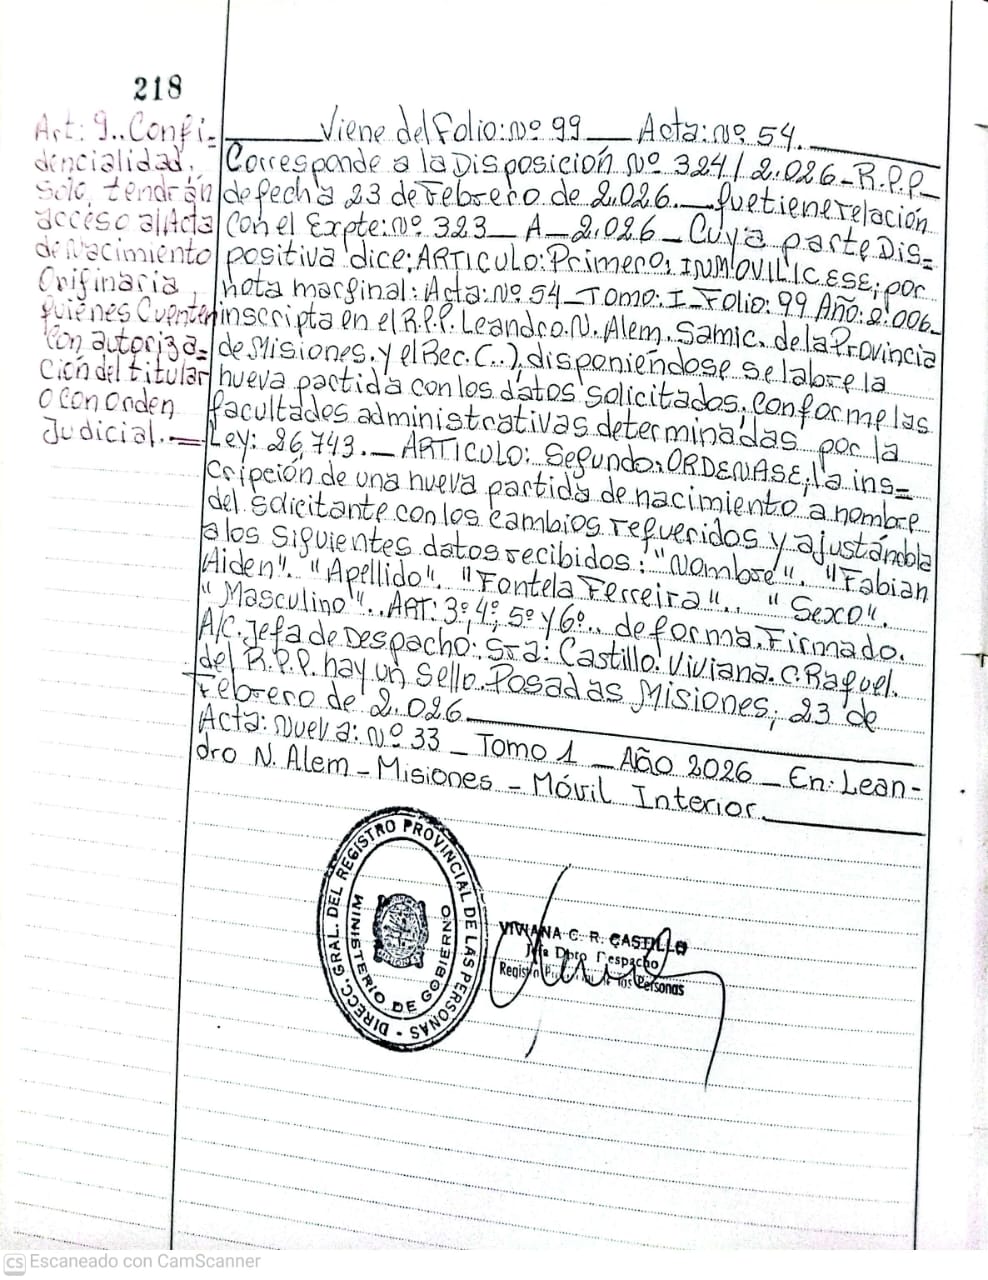 218
Art: 9.. Confi-
dencialidad,
Solo, tendrán
acceso al Acta
de Nacimiento
Originaria
quienes Cuenten
Con autoriza=
ción del titular
o con Orden
Judicial.—
Viene del Folio: Nº 99 — Acta: Nº 54.
Corresponde a la Disposición Nº 324/2.026-R.P.P.—
de fecha 23 de Febrero de 2.026.— que tiene relación
Con el Expte: Nº 323 — A — 2.026 — Cuya parte Dis=
positiva dice: ARTICULO: Primero: INMOVILICESE; por
nota marginal: Acta: Nº 54 — Tomo: I — Folio: 99 Año: 2.006—
inscripta en el R.P.P. Leandro. N. Alem. Samic. de la Provincia
de Misiones. y el Rec. C..), disponiéndose se labre la
nueva partida con los datos solicitados, conforme las
facultades administrativas determinadas por la
Ley: 26,743. — ARTICULO: Segundo: ORDENASE, la ins=
cripción de una nueva partida de nacimiento a nombre
del solicitante con los cambios requeridos y ajustándola
a los siguientes datos recibidos: "Nombre". "Fabian
Aiden". "Apellido". "Fontela Ferreira".. "Sexo".
"Masculino".. ART: 3º, 4º, 5º y 6º.. de forma. Firmado.
A/C. Jefa de Despacho: Sra: Castillo. Viviana. C. Raquel.
del R.P.P. hay un Sello. Posadas Misiones, 23 de
Febrero de 2.026
Acta: Nueva: Nº 33 — Tomo 1 — Año 2026 — En: Lean-
dro N. Alem — Misiones — Móvil Interior.
DIRECC. GRAL. DEL REGISTRO PROVINCIAL DE LAS PERSONAS -
MINISTERIO DE GOBIERNO
VIVIANA C. R. CASTILLO
Jefa Dpto Despacho
de las Personas
CS Escaneado con CamScanner